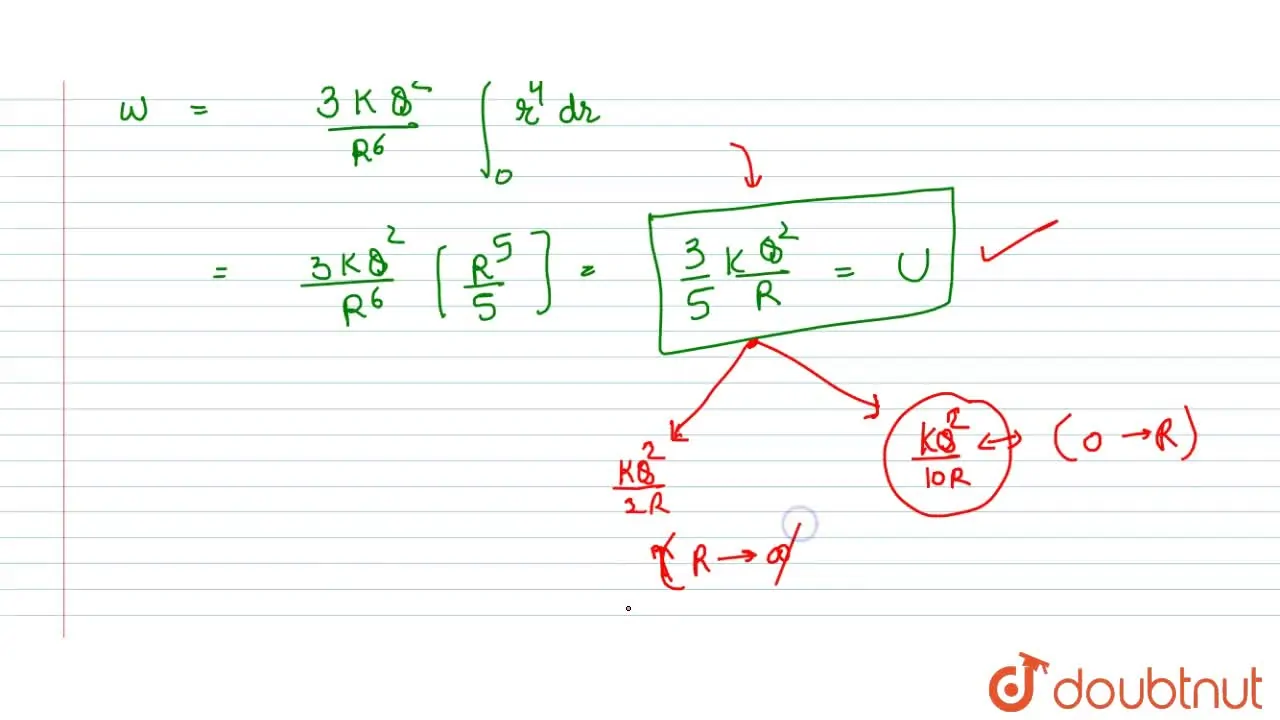 W = 3KQ² / R⁶ ∫₀ r⁴ dr
= 3KQ² / R⁶ [R⁵ / 5] = 3/5 KQ² / R = U
KQ² / 2R
KQ² / 10R ↔ (0 → R)
R → ∞
doubtnut